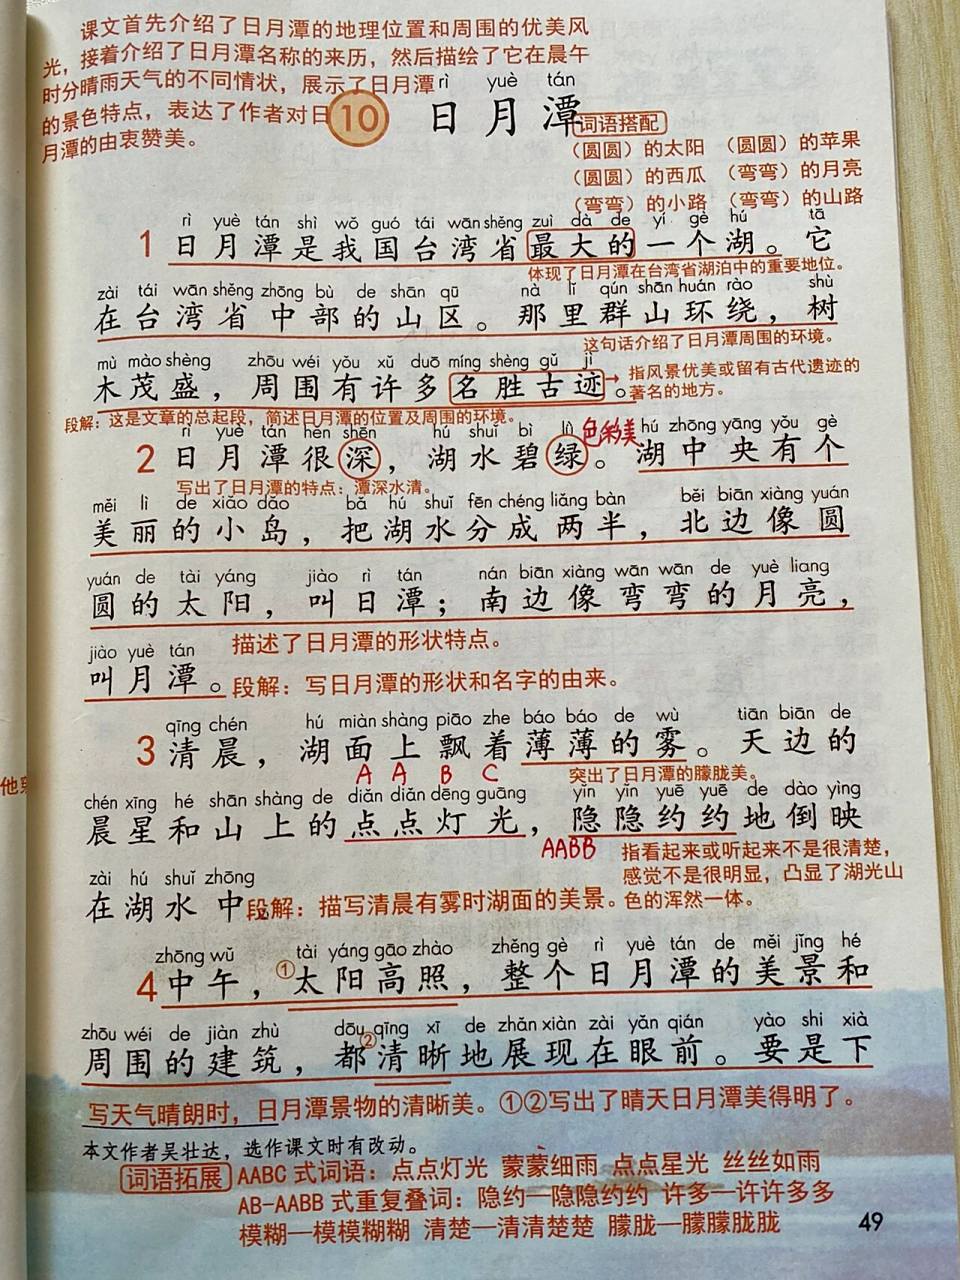 课文首先介绍了日月潭的地理位置和周围的优美风
光，接着介绍了日月潭名称的来历，然后描绘了它在晨午
时分晴雨天气的不同情状，展示了日月潭
的景色特点，表达了作者对日
月潭的由衷赞美。
rì yuè tán
10 日月潭
词语搭配
（圆圆）的太阳 （圆圆）的苹果
（圆圆）的西瓜 （弯弯）的月亮
（弯弯）的小路 （弯弯）的山路
rì yuè tán shì wǒ guó tái wān shěng zuì dà de yí gè hú tā
1 日月潭是我国台湾省最大的一个湖。它
体现了日月潭在台湾省湖泊中的重要地位。
zài tái wān shěng zhōng bù de shān qū nà lǐ qún shān huán rào shù
在台湾省中部的山区。那里群山环绕，树
这句话介绍了日月潭周围的环境。
mù mào shèng zhōu wéi yǒu xǔ duō míng shèng gǔ jì
木茂盛，周围有许多名胜古迹。
指风景优美或留有古代遗迹的
著名的地方。
段解：这是文章的总起段，简述日月潭的位置及周围的环境。
rì yuè tán hěn shēn hú shuǐ bì lǜ hú zhōng yāng yǒu gè
2 日月潭很深，湖水碧绿。湖中央有个
色彩美
写出了日月潭的特点：潭深水清。
měi lì de xiǎo dǎo bǎ hú shuǐ fēn chéng liǎng bàn běi biān xiàng yuán
美丽的小岛，把湖水分成两半，北边像圆
yuán de tài yáng jiào rì tán nán biān xiàng wān wān de yuè liang
圆的太阳，叫日潭；南边像弯弯的月亮，
描述了日月潭的形状特点。
jiào yuè tán
叫月潭。段解：写日月潭的形状和名字的由来。
qīng chén hú miàn shàng piāo zhe báo báo de wù tiān biān de
3 清晨，湖面上飘着薄薄的雾。天边的
A A B C
突出了日月潭的朦胧美。
chén xīng hé shān shàng de diǎn diǎn dēng guāng yǐn yǐn yuē yuē de dào yìng
晨星和山上的点点灯光，隐隐约约地倒映
AABB
指看起来或听起来不是很清楚，
感觉不是很明显，凸显了湖光山
色的浑然一体。
zài hú shuǐ zhōng
在湖水中。段解：描写清晨有雾时湖面的美景。
zhōng wǔ tài yáng gāo zhào zhěng gè rì yuè tán de měi jǐng hé
4 中午，①太阳高照，整个日月潭的美景和
zhōu wéi de jiàn zhù dōu qīng xī de zhǎn xiàn zài yǎn qián yào shi xià
周围的建筑，都②清晰地展现在眼前。要是下
写天气晴朗时，日月潭景物的清晰美。①②写出了晴天日月潭美得明了。
本文作者吴壮达，选作课文时有改动。
词语拓展 AABC式词语：点点灯光 蒙蒙细雨 点点星光 丝丝如雨
AB—AABB式重复叠词：隐约—隐隐约约 许多—许许多多
模糊—模模糊糊 清楚—清清楚楚 朦胧—朦朦胧胧
49